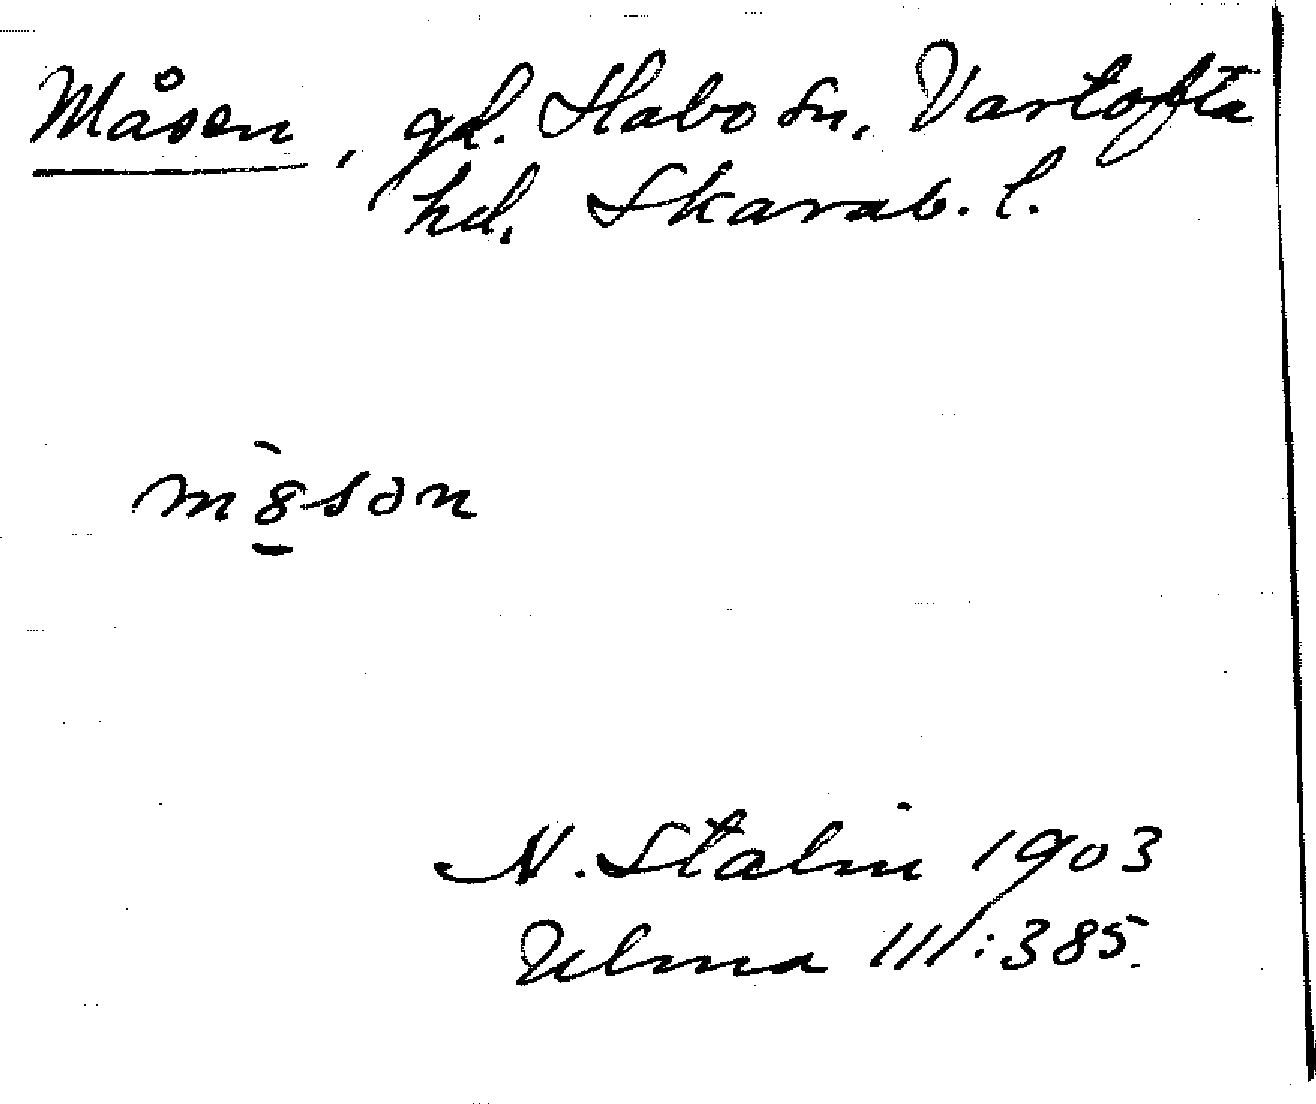 Måsen, gd. Habo sn, Vartofta
hd, Skarab. l.
N. Stalin 1903
Ulma 111:385.